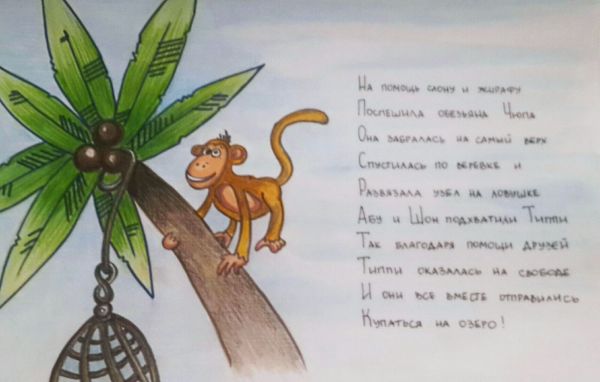 На помощь слону и жирафу
Поспешила обезьяна Чюпа
Она забралась на самый верх
Спустилась по веревке и
Развязала узел на ловушке
Абу и Шон подхватили Типпи
Так благодаря помощи друзей
Типпи оказалась на свободе
И они все вместе отправились
Купаться на озеро!